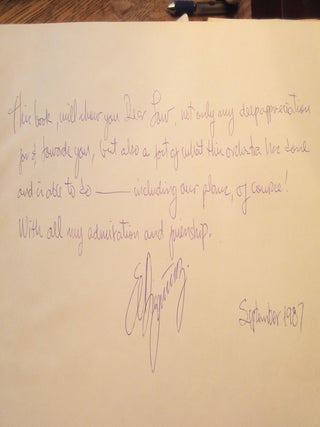 This book, will show you Dear Law, not only my deep appreciation
for & towards you, but also a lot of what this orchestra has done
and is able to do —— including our plane, of course!
With all my admiration and friendship.
September 1987